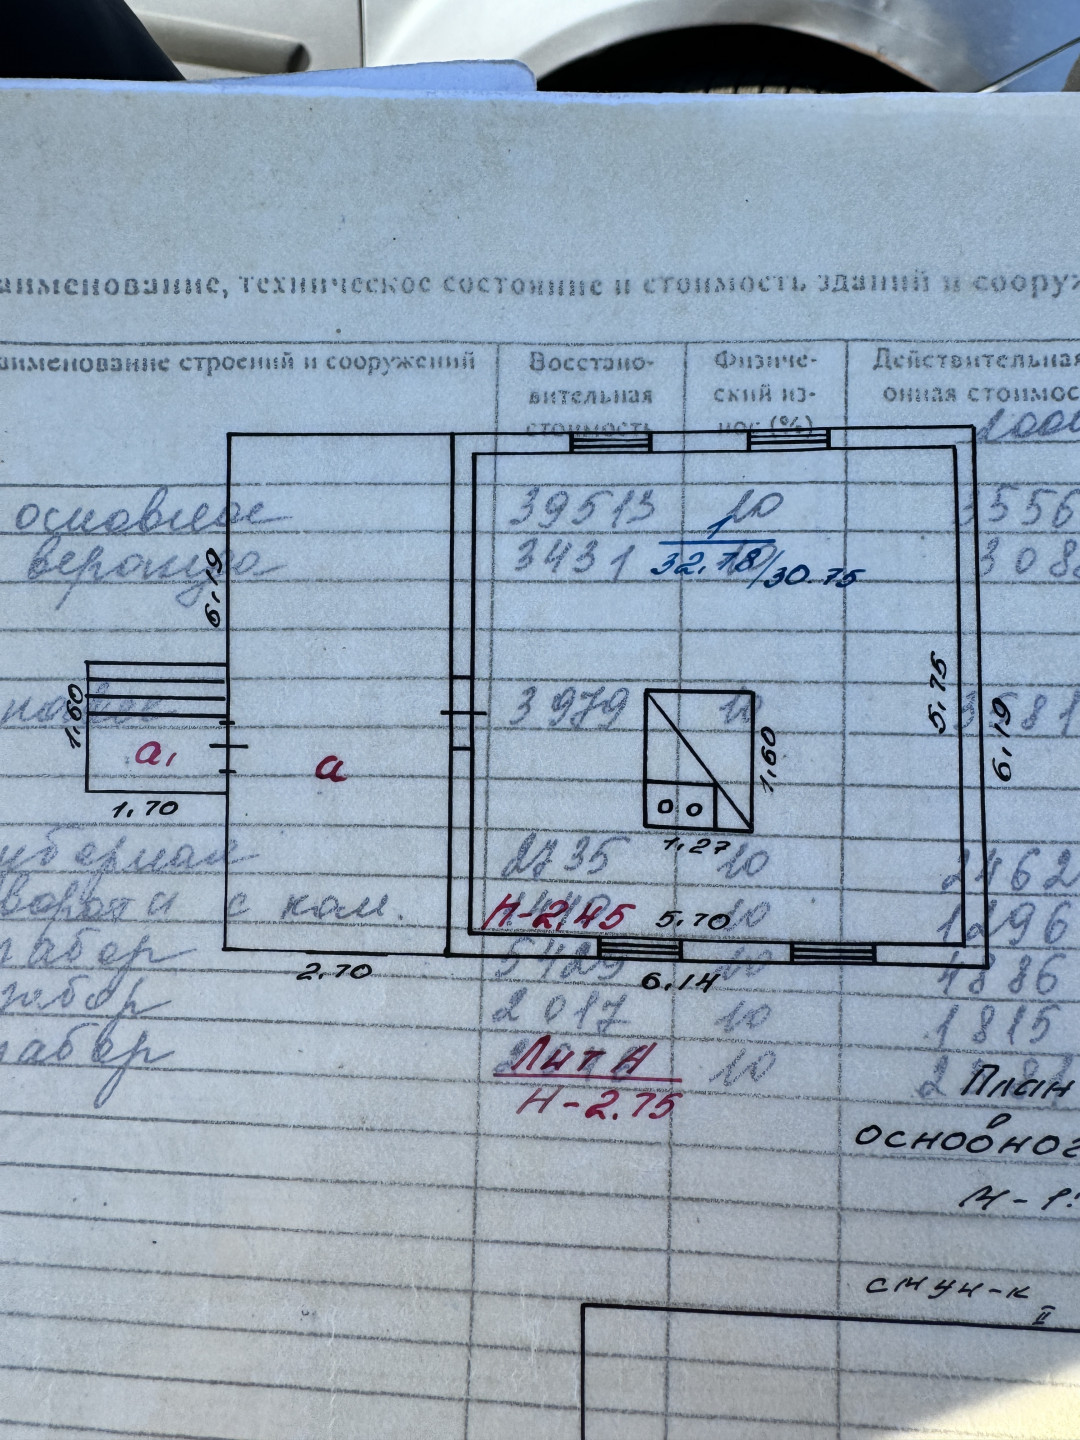 аименование, техническое состояние и стоимость зданий и сооруж
аименование строений и сооружений
Восстано-
вительная
стоимость
Физиче-
ский из-
нос (%)
Действительная
онная стоимос
основное 39513 10 3556
веранда 3431 10 308
1
32.78/30.75
6,19
5,75
6,19
навес 3979 10 3581
1,60
а₁
а
1,70
1,60
1,27
уборная 2735 10 2462
ворота с кал. 10 1296
Н-2,45 5,70
забор 5429 10 4886
2,70
6,14
забор 2017 10 1815
забор 10
Лит А
Н-2.75
План
основног
М-1:
смун-к
II